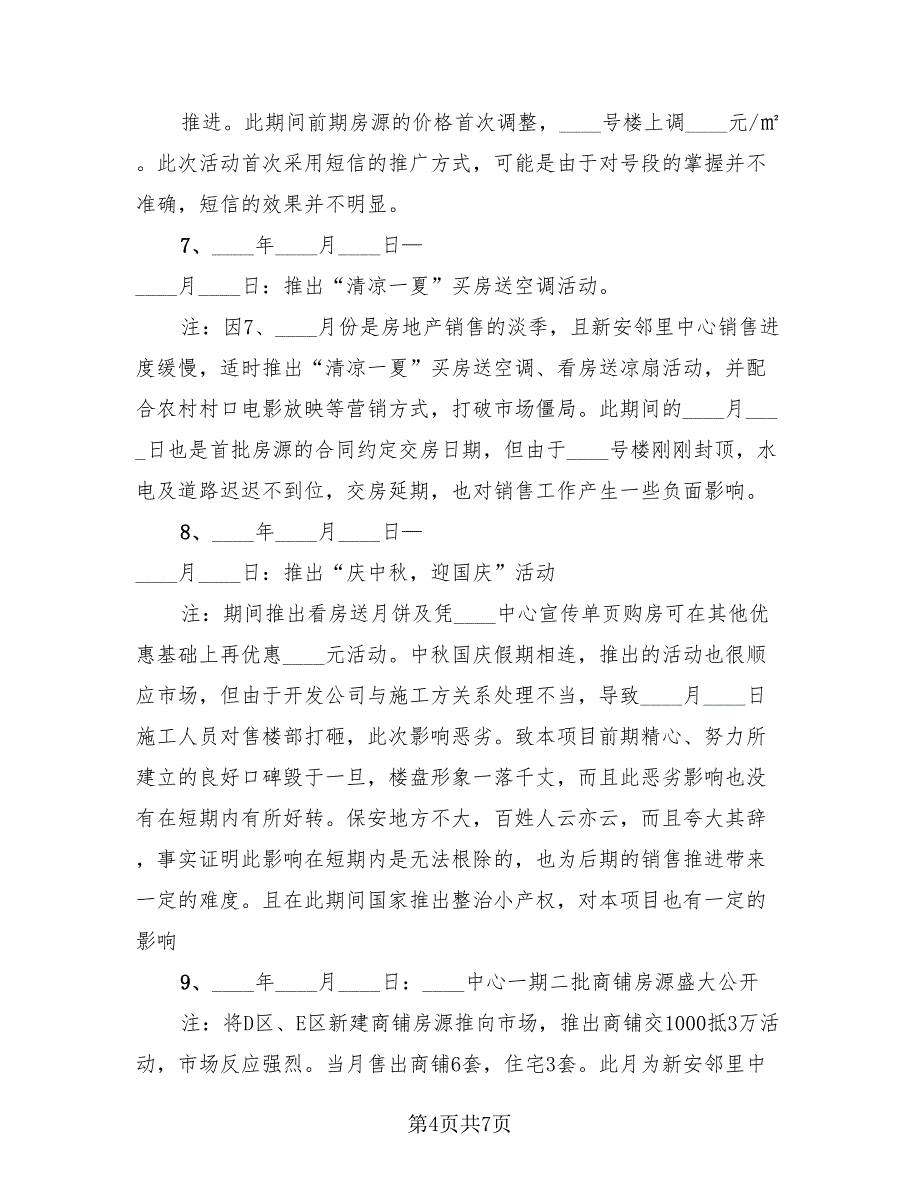 推进。此期间前期房源的价格首次调整，____号楼上调____元/㎡
。此次活动首次采用短信的推广方式，可能是由于对号段的掌握并不
准确，短信的效果并不明显。
7、____年____月____日—
____月____日：推出“清凉一夏”买房送空调活动。
注：因7、____月份是房地产销售的淡季，且新安邻里中心销售进
度缓慢，适时推出“清凉一夏”买房送空调、看房送凉扇活动，并配
合农村村口电影放映等营销方式，打破市场僵局。此期间的____月___
_日也是首批房源的合同约定交房日期，但由于____号楼刚刚封顶，水
电及道路迟迟不到位，交房延期，也对销售工作产生一些负面影响。
8、____年____月____日—
____月____日：推出“庆中秋，迎国庆”活动
注：期间推出看房送月饼及凭____中心宣传单页购房可在其他优
惠基础上再优惠____元活动。中秋国庆假期相连，推出的活动也很顺
应市场，但由于开发公司与施工方关系处理不当，导致____月____日
施工人员对售楼部打砸，此次影响恶劣。致本项目前期精心、努力所
建立的良好口碑毁于一旦，楼盘形象一落千丈，而且此恶劣影响也没
有在短期内有所好转。保安地方不大，百姓人云亦云，而且夸大其辞
，事实证明此影响在短期内是无法根除的，也为后期的销售推进带来
一定的难度。且在此期间国家推出整治小产权，对本项目也有一定的
影响
9、____年____月____日：____中心一期二批商铺房源盛大公开
注：将D区、E区新建商铺房源推向市场，推出商铺交1000抵3万活
动，市场反应强烈。当月售出商铺6套，住宅3套。此月为新安邻里中
第4页共7页